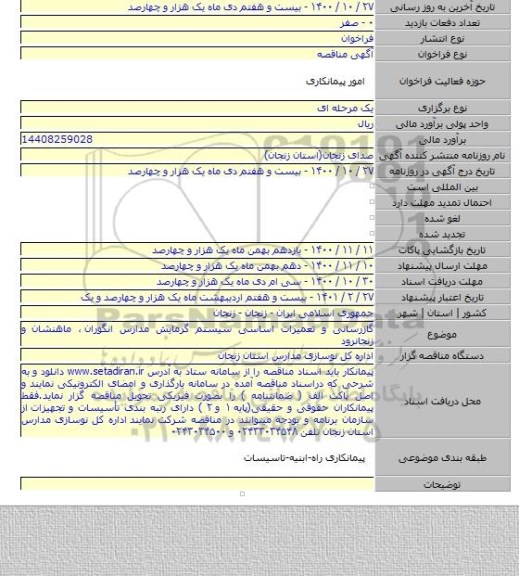 تاریخ آخرین به روز رسانی ۲۷ / ۱۰ / ۱۴۰۰ - بیست و هفتم دی ماه یک هزار و چهارصد
تعداد دفعات بازدید ۰ - صفر
نوع انتشار فراخوان
نوع فراخوان آگهی مناقصه
حوزه فعالیت فراخوان امور پیمانکاری
نوع برگزاری یک مرحله ای
واحد پولی برآورد مالی ریال
برآورد مالی 14408259028
نام روزنامه منتشر کننده آگهی صدای زنجان(استان زنجان)
تاریخ درج آگهی در روزنامه ۲۷ / ۱۰ / ۱۴۰۰ - بیست و هفتم دی ماه یک هزار و چهارصد
بین المللی است
احتمال تمدید مهلت دارد
لغو شده
تجدید شده
تاریخ بازگشایی پاکات ۱۱ / ۱۱ / ۱۴۰۰ - یازدهم بهمن ماه یک هزار و چهارصد
مهلت ارسال پیشنهاد ۱۰ / ۱۱ / ۱۴۰۰ - دهم بهمن ماه یک هزار و چهارصد
مهلت دریافت اسناد ۳۰ / ۱۰ / ۱۴۰۰ - سی ام دی ماه یک هزار و چهارصد
تاریخ اعتبار پیشنهاد ۲۷ / ۲ / ۱۴۰۱ - بیست و هفتم اردیبهشت ماه یک هزار و چهارصد و یک
کشور | استان | شهر جمهوری اسلامی ایران - زنجان - زنجان
موضوع گازرسانی و تعمیرات اساسی سیستم گرمایش مدارس انگوران ، ماهنشان و
زنجانرود
دستگاه مناقصه گزار اداره کل نوسازی مدارس استان زنجان
محل دریافت اسناد پیمانکار باید اسناد مناقصه را از سامانه ستاد به آدرس www.setadiran.ir دانلود و به
شرحی که دراسناد مناقصه آمده در سامانه بارگذاری و امضای الکترونیکی نمایند و
اصل پاکت الف ( ضمانتنامه ) را بصورت فیزیکی تحویل مناقصه گزار نماید.فقط
پیمانکاران حقوقی و حقیقی(پایه ۱ و ۲ ) دارای رتبه بندی تأسیسات و تجهیزات از
سازمان برنامه و بودجه میتوانند در مناقصه شرکت نمایند اداره کل نوسازی مدارس
استان زنجان تلفن ۰۲۴۳۳۰۳۴۵۴۸ و ۰۲۴۳۰۳۴۵۰۰
طبقه بندی موضوعی پیمانکاری راه-ابنیه-تاسیسات
توضیحات